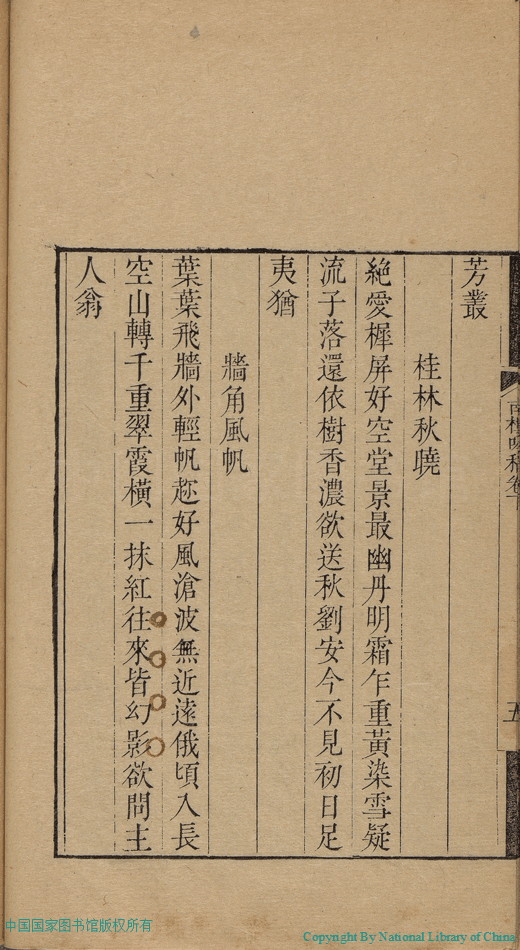 芳叢
桂林秋曉
絶愛樨屏好空堂景最幽丹明霜乍重黃染雪疑
流子落還依樹香濃欲送秋劉安今不見初日足
夷猶
牆角風帆
葉葉飛牆外輕帆趂好風滄波無近遠俄頃入長
空山轉千重翠霞橫一抹紅往來皆幻影欲問主
人翁
五
中国国家图书馆版权所有
Copyright By National Library of China